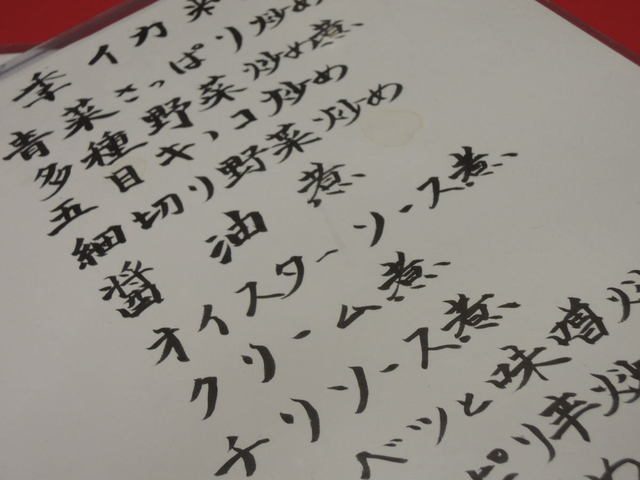 季イカ
青菜さっぱり炒め
多種野菜炒め煮
五目キノコ炒め
細切り野菜炒め
醤油煮
オイスターソース煮
クリーム煮
チリソース煮
ベツと味噌炒
ピリ辛炒
め